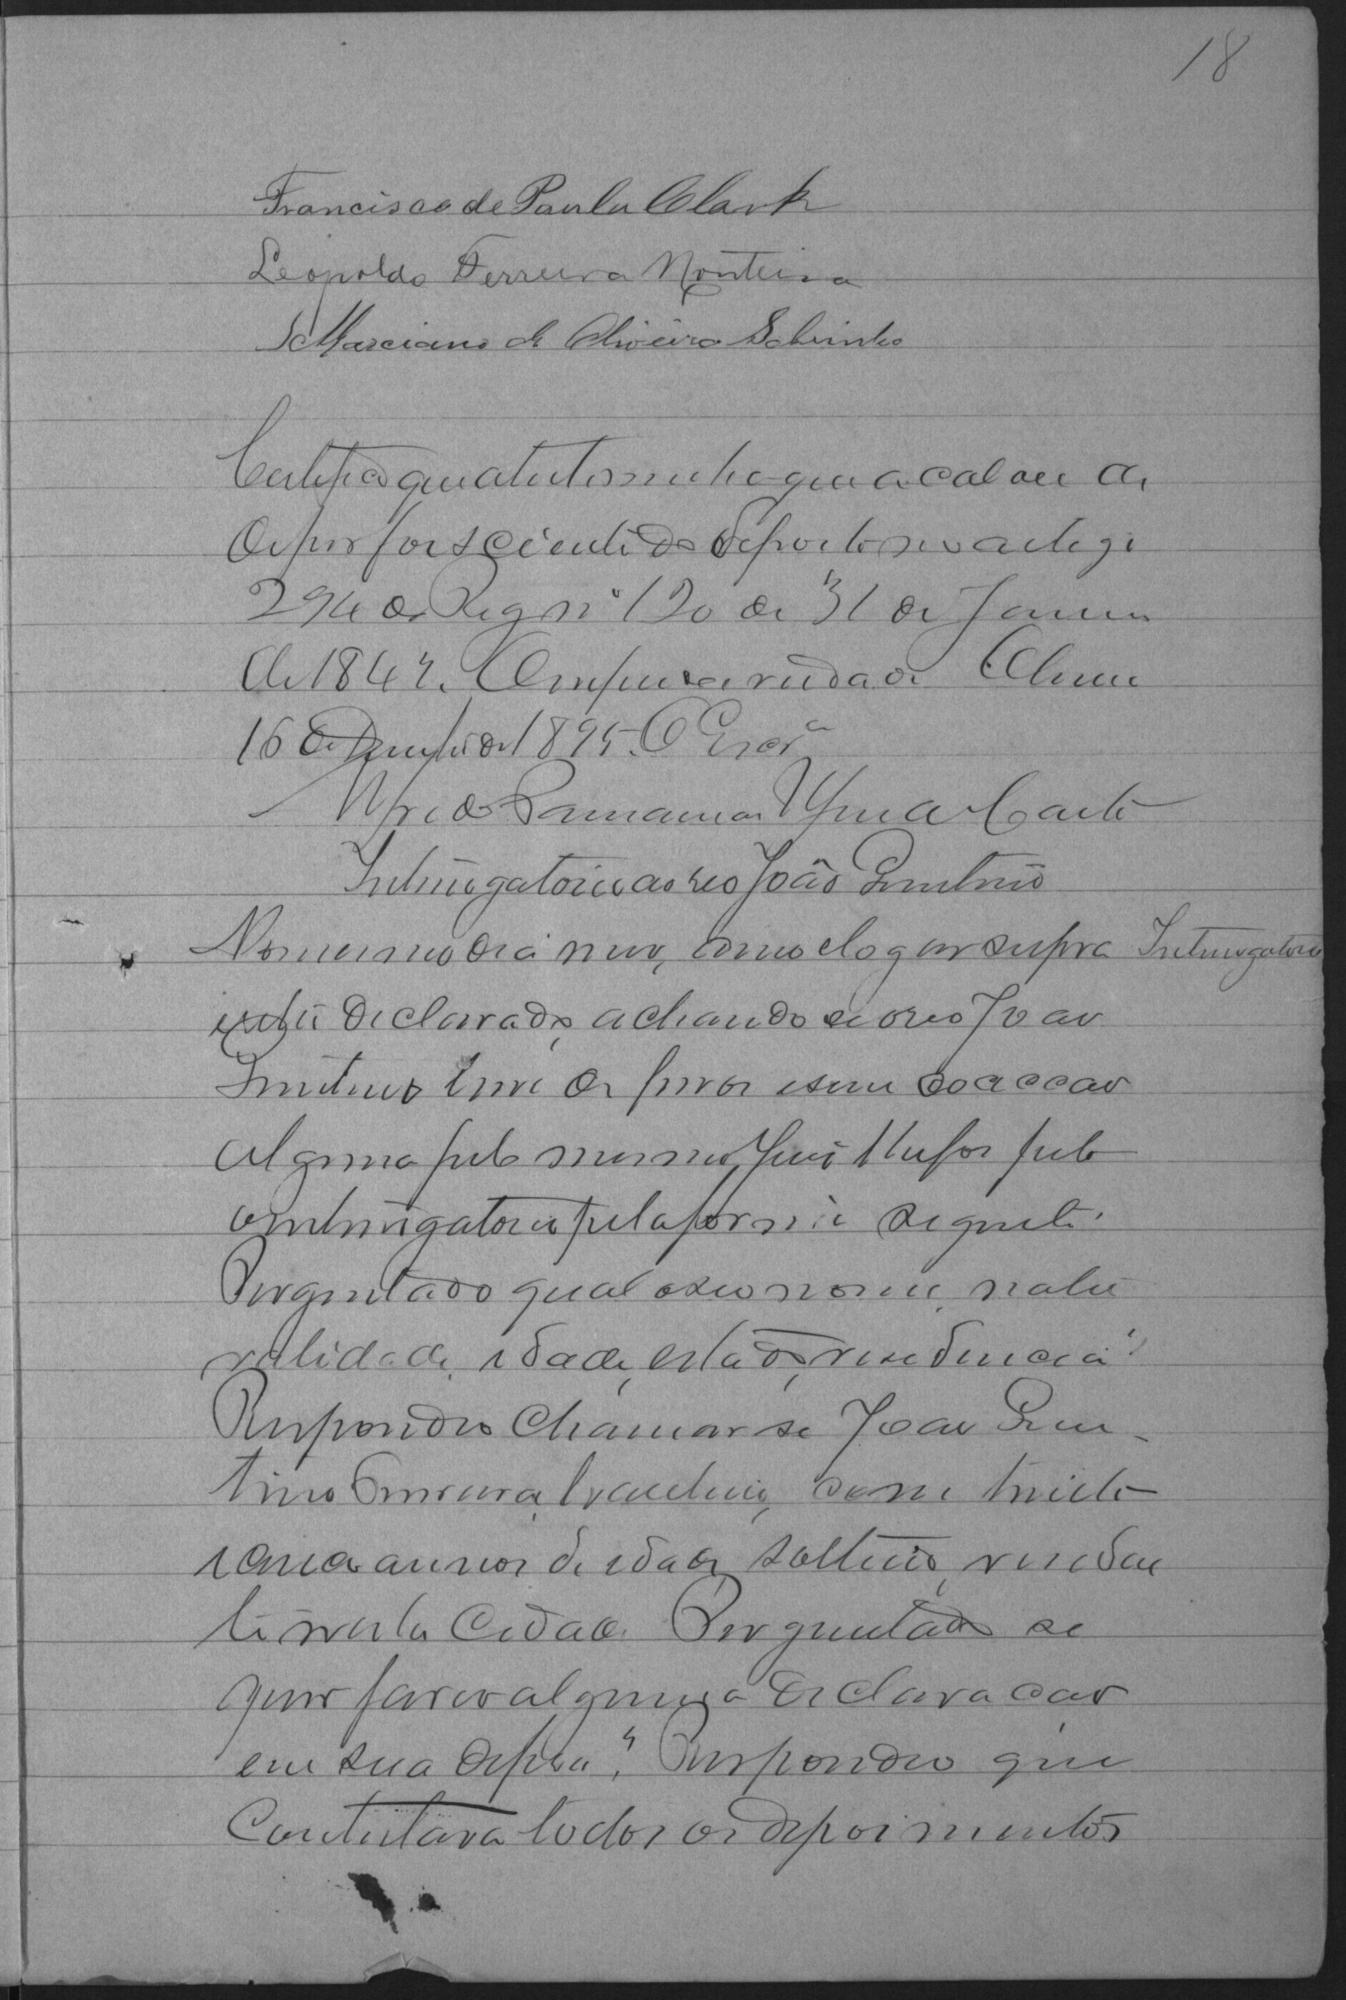 18
Francisco de Paula Clark
Leopoldo Ferreira Monteiro
Marciano de Oliveira Sobrinho
Certifico que a testemunha que acabou de
depor foi scientificado disposto no artigo
294 do Reg nº 120 de 31 de Janeiro
de 1842. O referido é verdade
16 de Dezembro de 1895. O Escr.am
Interrogatorio ao reo João
No mesmo dia, mez, anno e logar supra Interrogatorio
declarado, achando se o reo João
livre de ferros e sem coaccao
alguma pelo mesmo Juiz lhe foi feito
o interrogatorio pela forma seguinte:
Perguntado qual o seo nome, natu
ralidade, idade, estado, residencia?
Respondeo chamar se João
brazileiro, com trinta
e cinco annos de idade, solteiro, residen
te nesta Cidade. Perguntado se
quer fazer alguma declaracao
em sua defesa? Respondeo que
Contestava todos os depoimentos